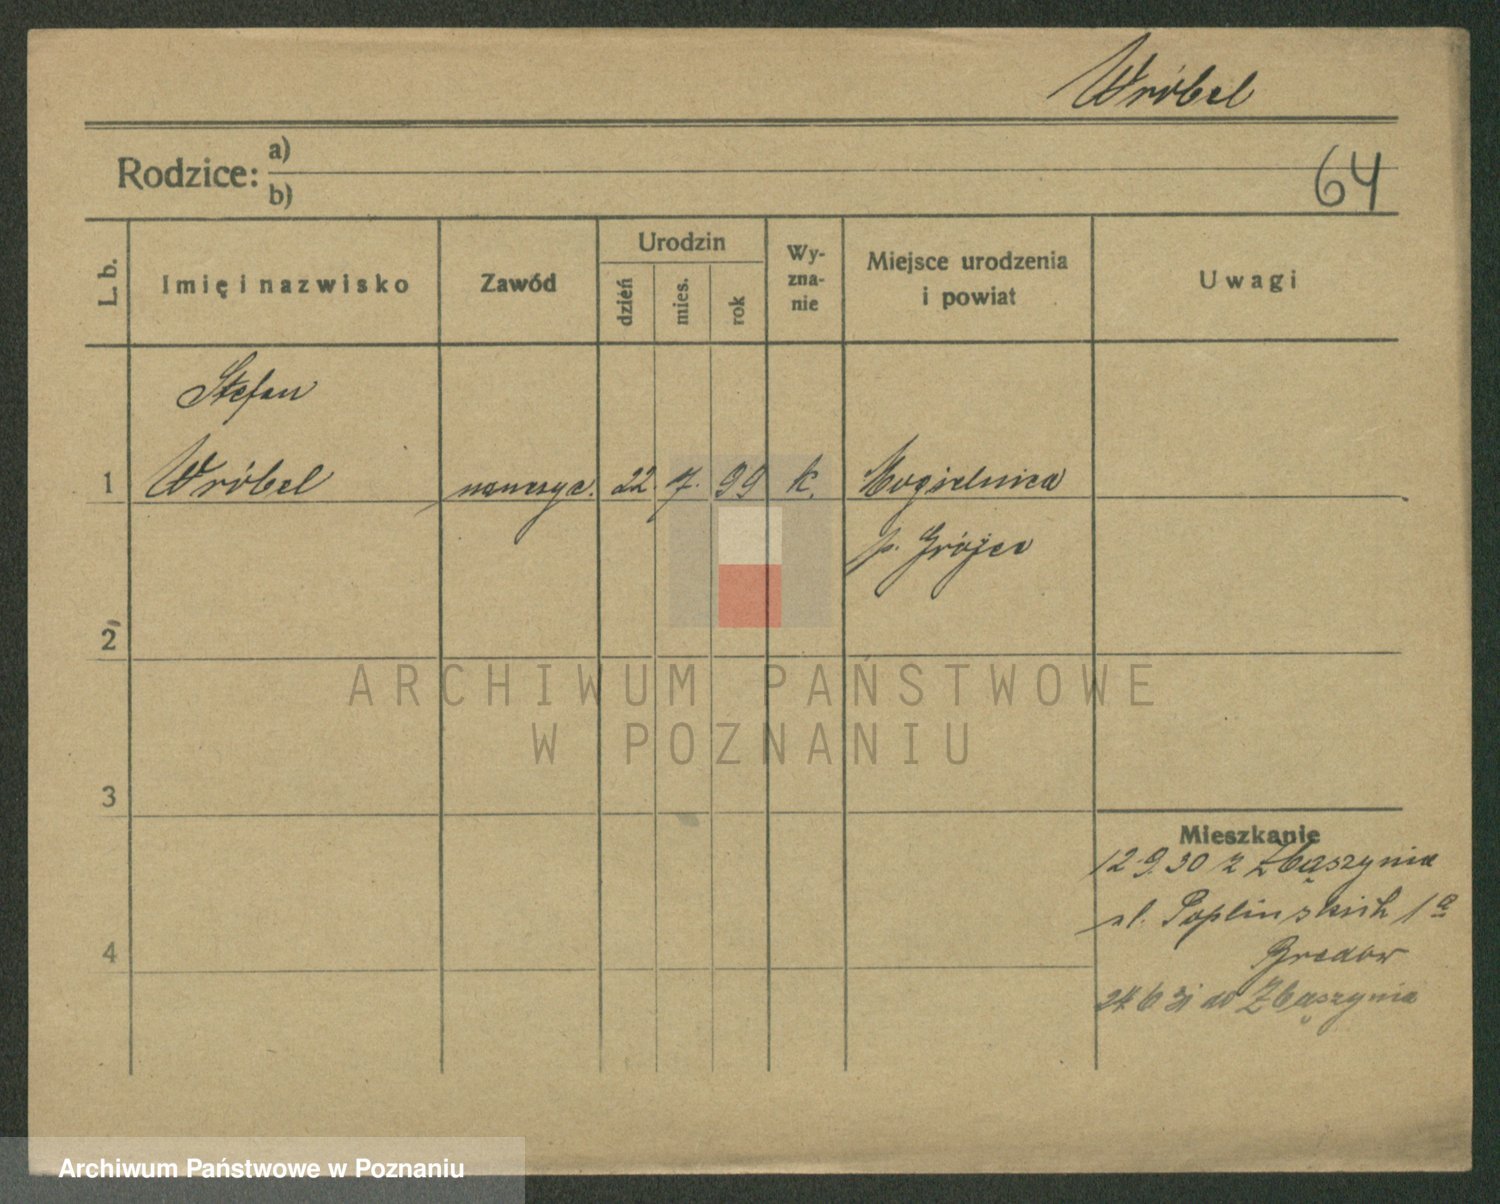 Wróbel
Rodzice: a)
b)
64
L. b.
Imię i nazwisko
Zawód
Urodzin
dzień
mies.
rok
Wy-
zna-
nie
Miejsce urodzenia
i powiat
Uwagi
Stefan
1 Wróbel nauczyc. 22. 7. 99 k. Mogielnica
p. Grójec
2
ARCHIWUM PAŃSTWOWE
W POZNANIU
3
Mieszkanie
12.9.30 z Zbąszynia
ul. Poplinskich 1a
4
24.6.31 do Zbąszynia
Archiwum Państwowe w Poznaniu